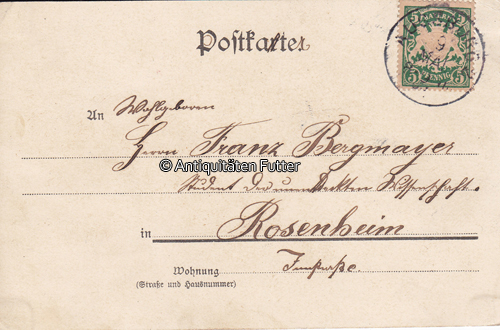 Postkarte
BAYERN
5 PFENNIG 5
9
MAI
An Wohlgeboren
Herrn Franz Bergmayer
© Antiquitäten Futter
Student der Wissenschaft
in Rosenheim
Wohnung Innstraße.
(Straße und Hausnummer)